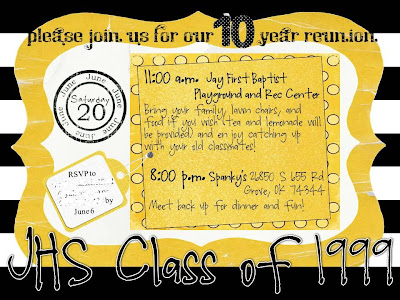 please join us for our 10 year reunion.
June June June June June June
Saturday
20
11:00 a.m. Jay First Baptist
Playground and Rec Center
Bring your family, lawn chairs, and
food if you wish (tea and lemonade will
be provided) and enjoy catching up
with your old classmates!
8:00 p.m. Spanky's 26850 S 655 Rd
Grove, OK 74344
Meet back up for dinner and fun!
RSVP to
by
June 6
JHS Class of 1999